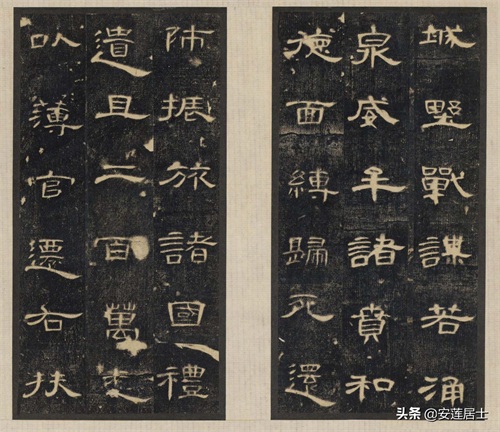 城野戰謀若涌
泉威牟諸賁和
德面縛歸死還
師振旅諸國禮
遺且二百萬悉
以薄官遷右扶
头条 @安莲居士